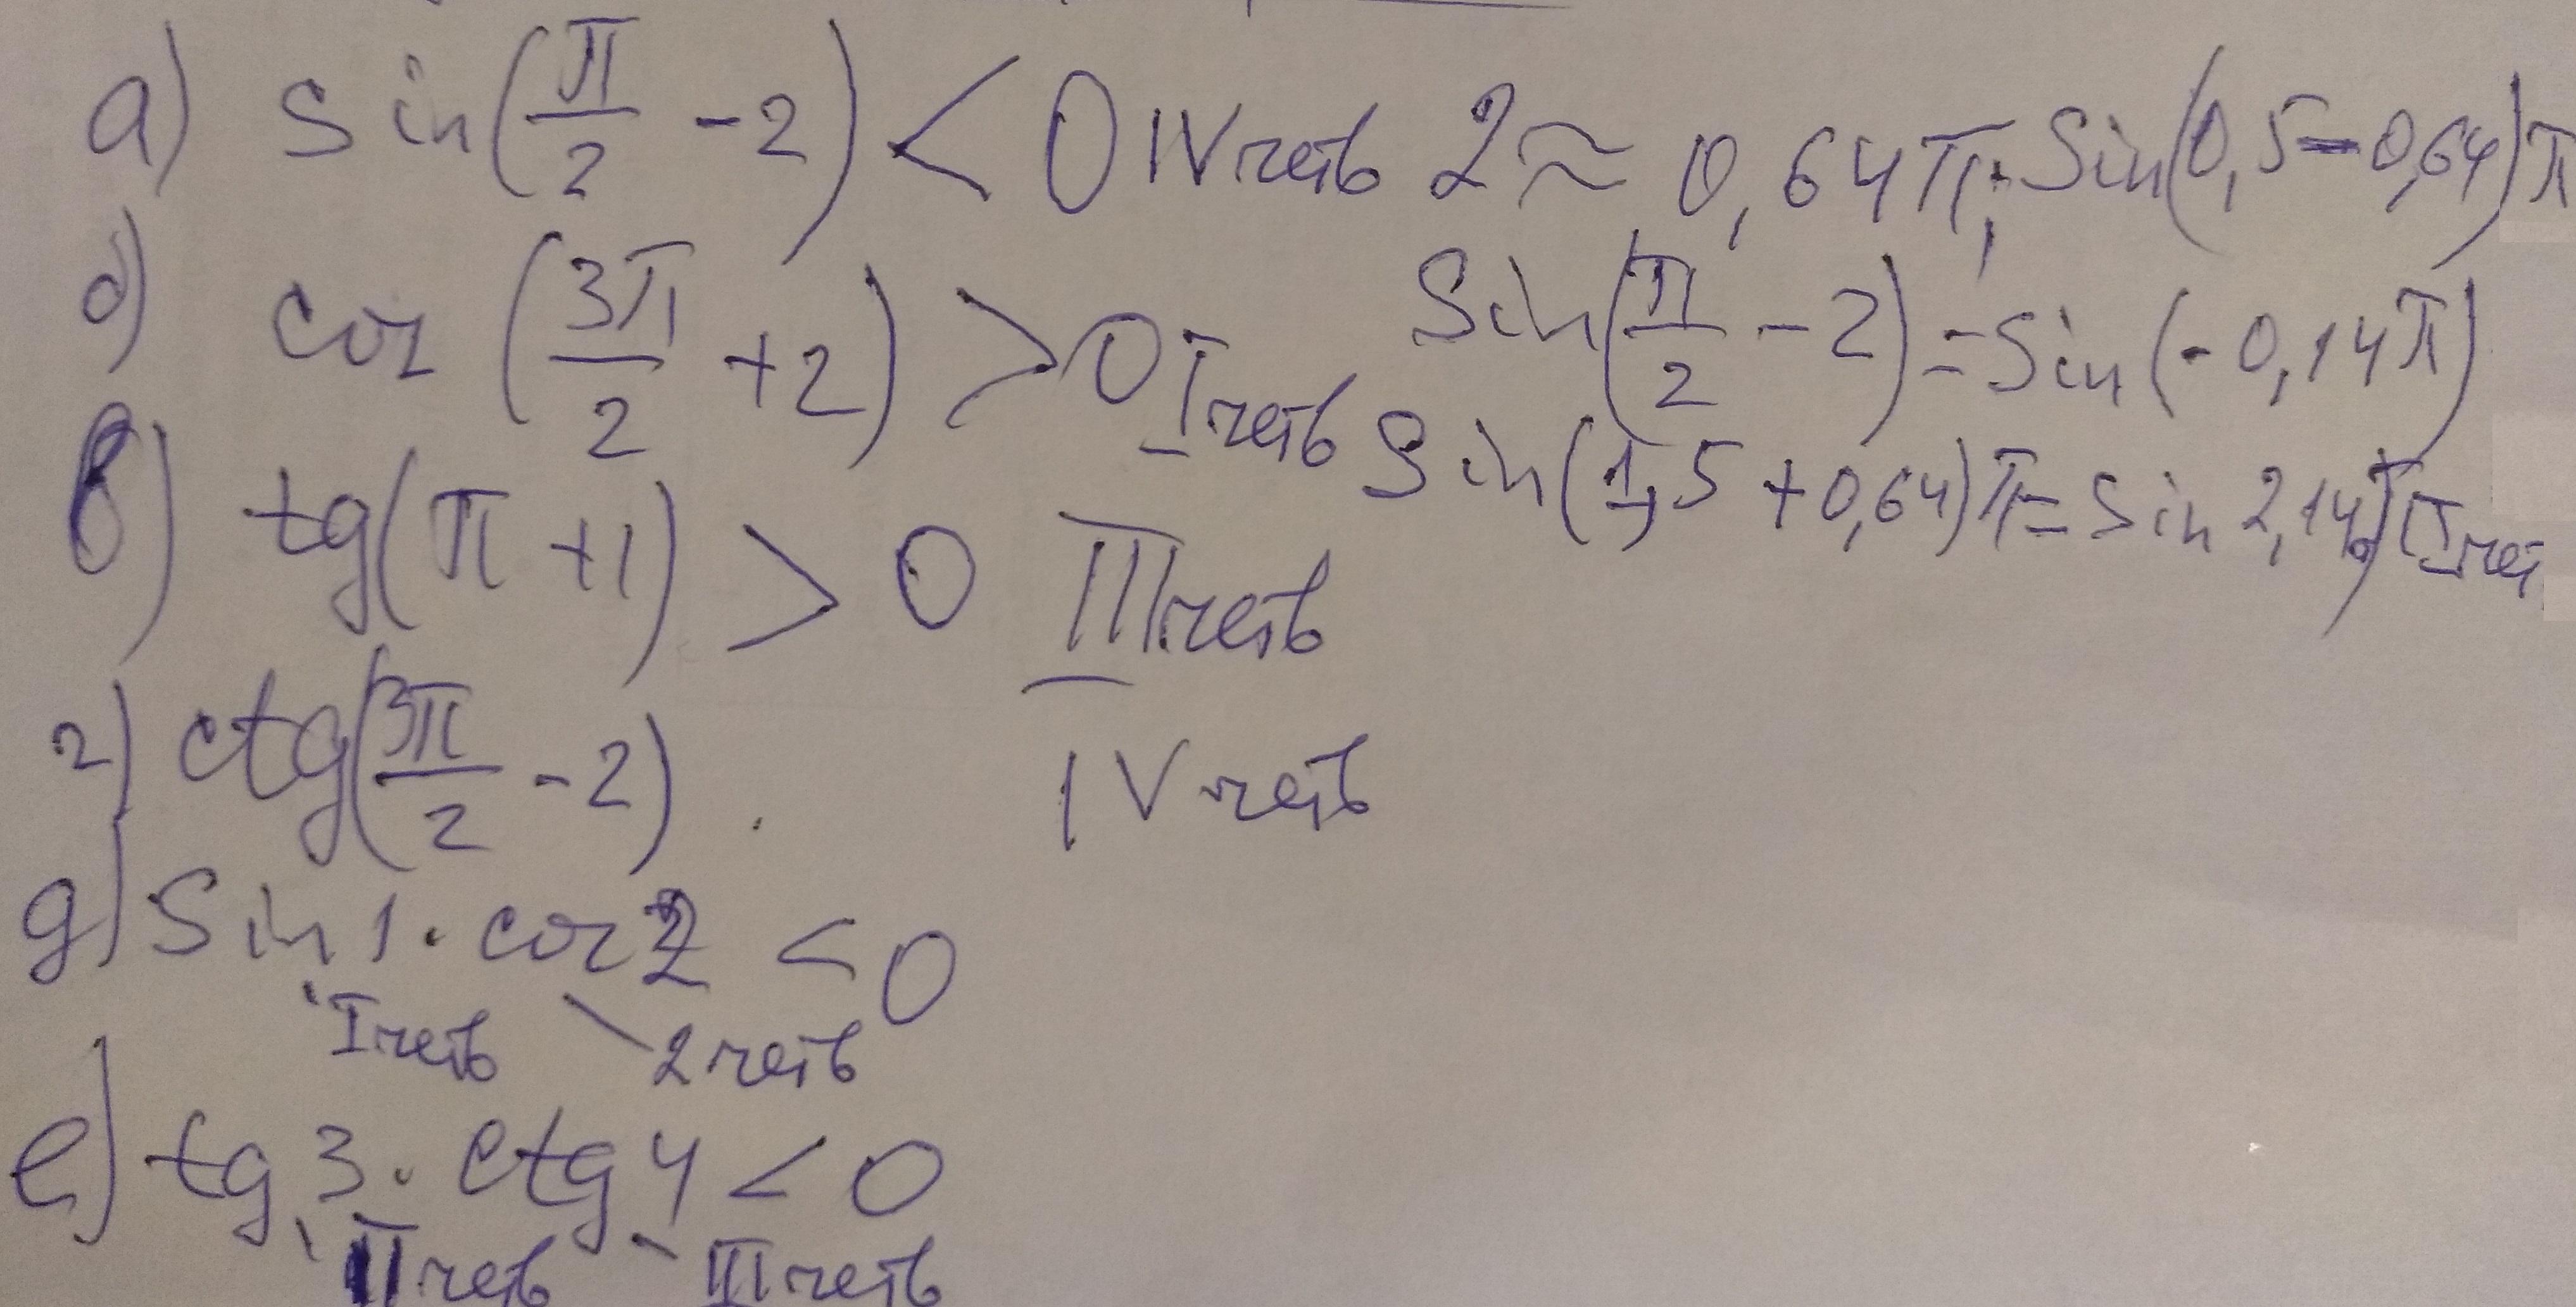 а) sin(π/2 - 2) < 0 IV четв 2 ≈ 0,64π; sin(0,5-0,64)π
б) cos (3π/2 + 2) > 0 I четв sin(π/2 - 2) = sin(-0,14π)
sin(1,5+0,64)π = sin 2,14π I чет
в) tg(π + 1) > 0 III четв
г) ctg(3π/2 - 2) . IV четв
д) sin 1 · cos 2 < 0
I четв 2 четв
е) tg 3 · ctg 4 < 0
II четв III четв